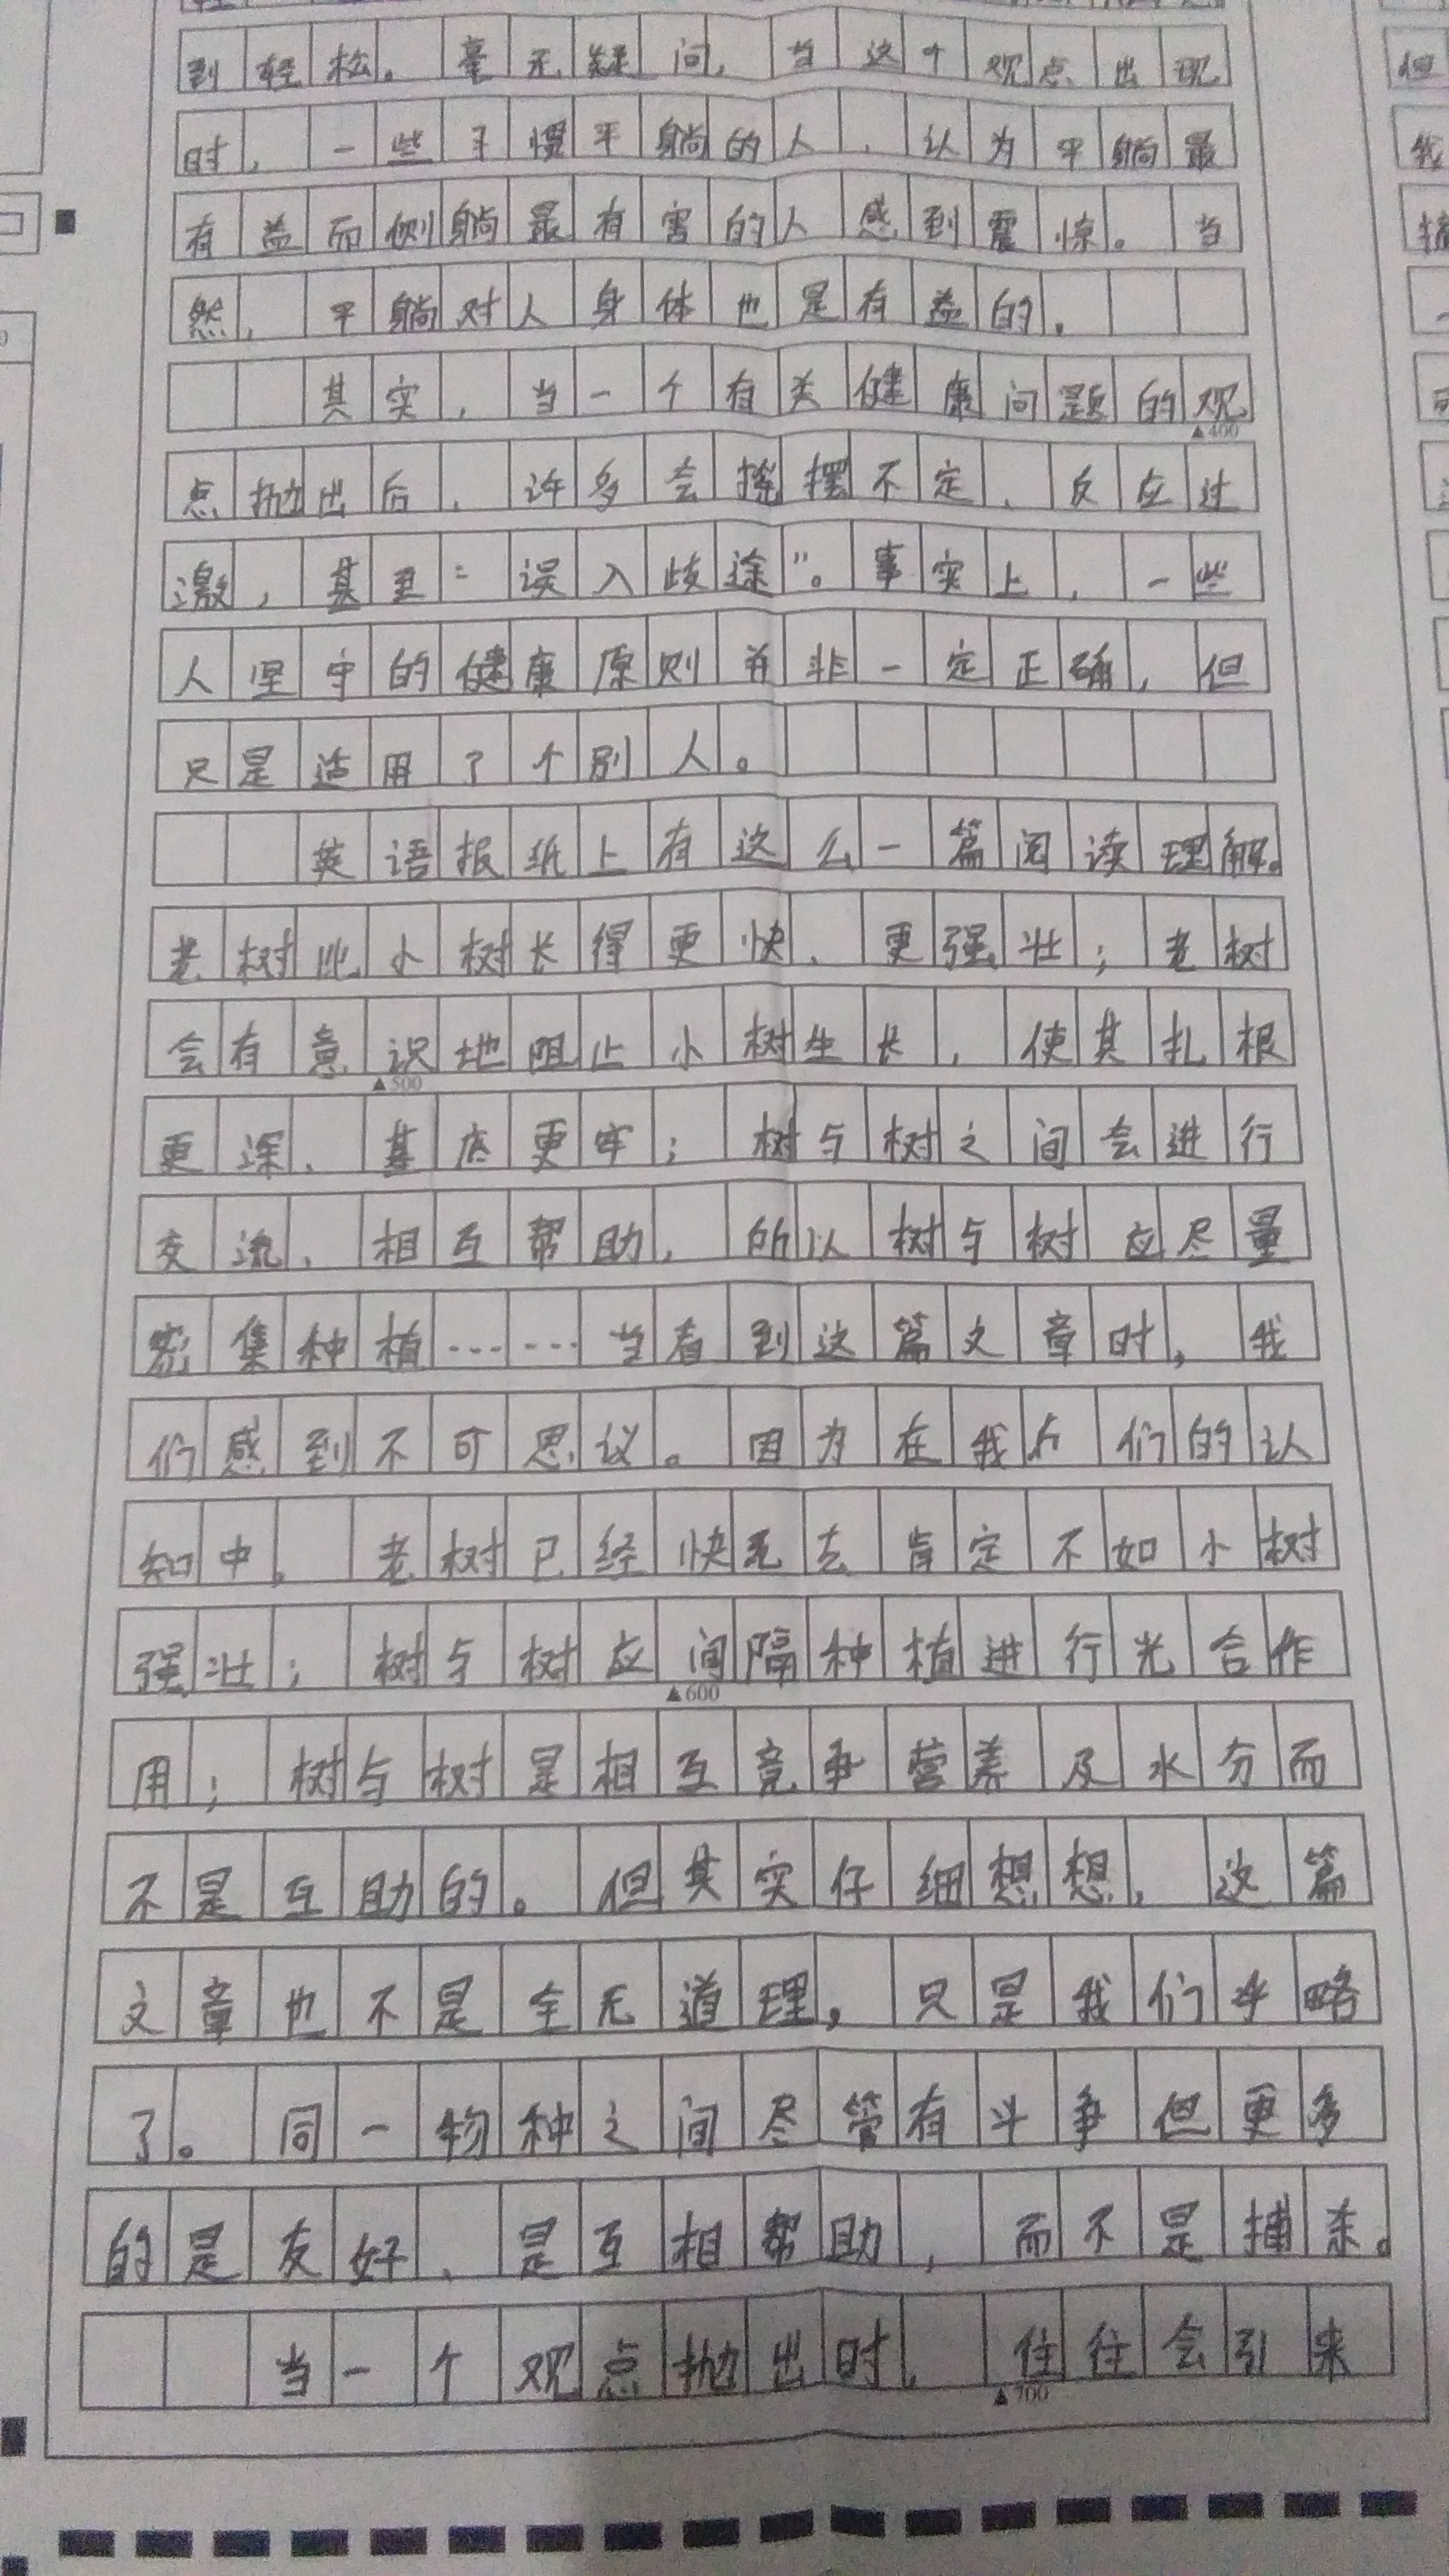 到轻松。毫无疑问,当这个观点出现
时,一些习惯平躺的人,认为平躺最
有益而侧躺最有害的人感到震惊。当
然,平躺对人身体也是有益的。
其实,当一个有关健康问题的观
▲400
点抛出后,许多会摇摆不定、反应过
激,甚至“误入歧途”。事实上,一些
人坚守的健康原则并非一定正确,但
只是适用了个别人。
英语报纸上有这么一篇阅读理解。
老树比小树长得更快、更强壮;老树
会有意识地阻止小树生长,使其扎根
▲500
更深、基底更牢;树与树之间会进行
交流、相互帮助,所以树与树应尽量
密集种植……当看到这篇文章时,我
们感到不可思议。因为在我们的认
知中,老树已经快死去肯定不如小树
强壮;树与树应间隔种植进行光合作
▲600
用;树与树是相互竞争营养及水分而
不是互助的。但其实仔细想想,这篇
文章也不是全无道理,只是我们乎略
了。同一物种之间尽管有斗争但更多
的是友好、是互相帮助,而不是捕杀。
当一个观点抛出时,往往会引来
▲700
但
我